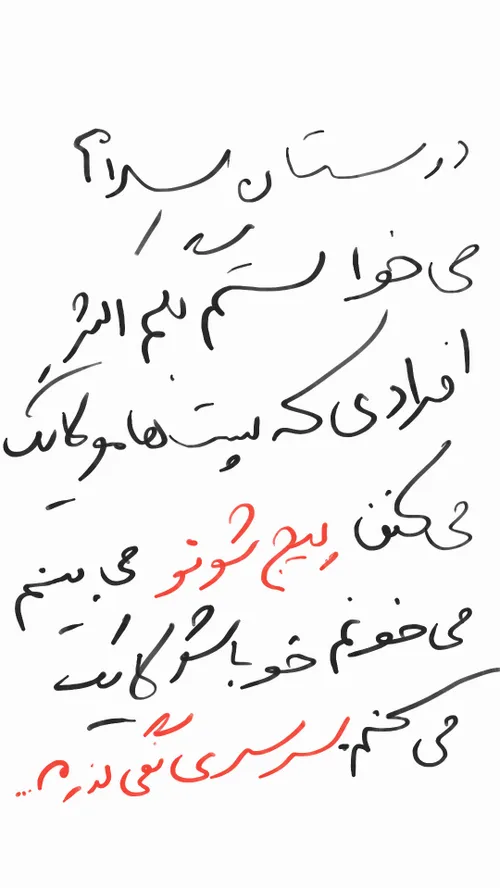 دوستان سلام
می خواستم بگم اکثر
افرادی که پست هامو لایک
می کنن پیج شونو می بینم
می خونم خوباشو لایک
می کنم. سرسری نمی گذرم...